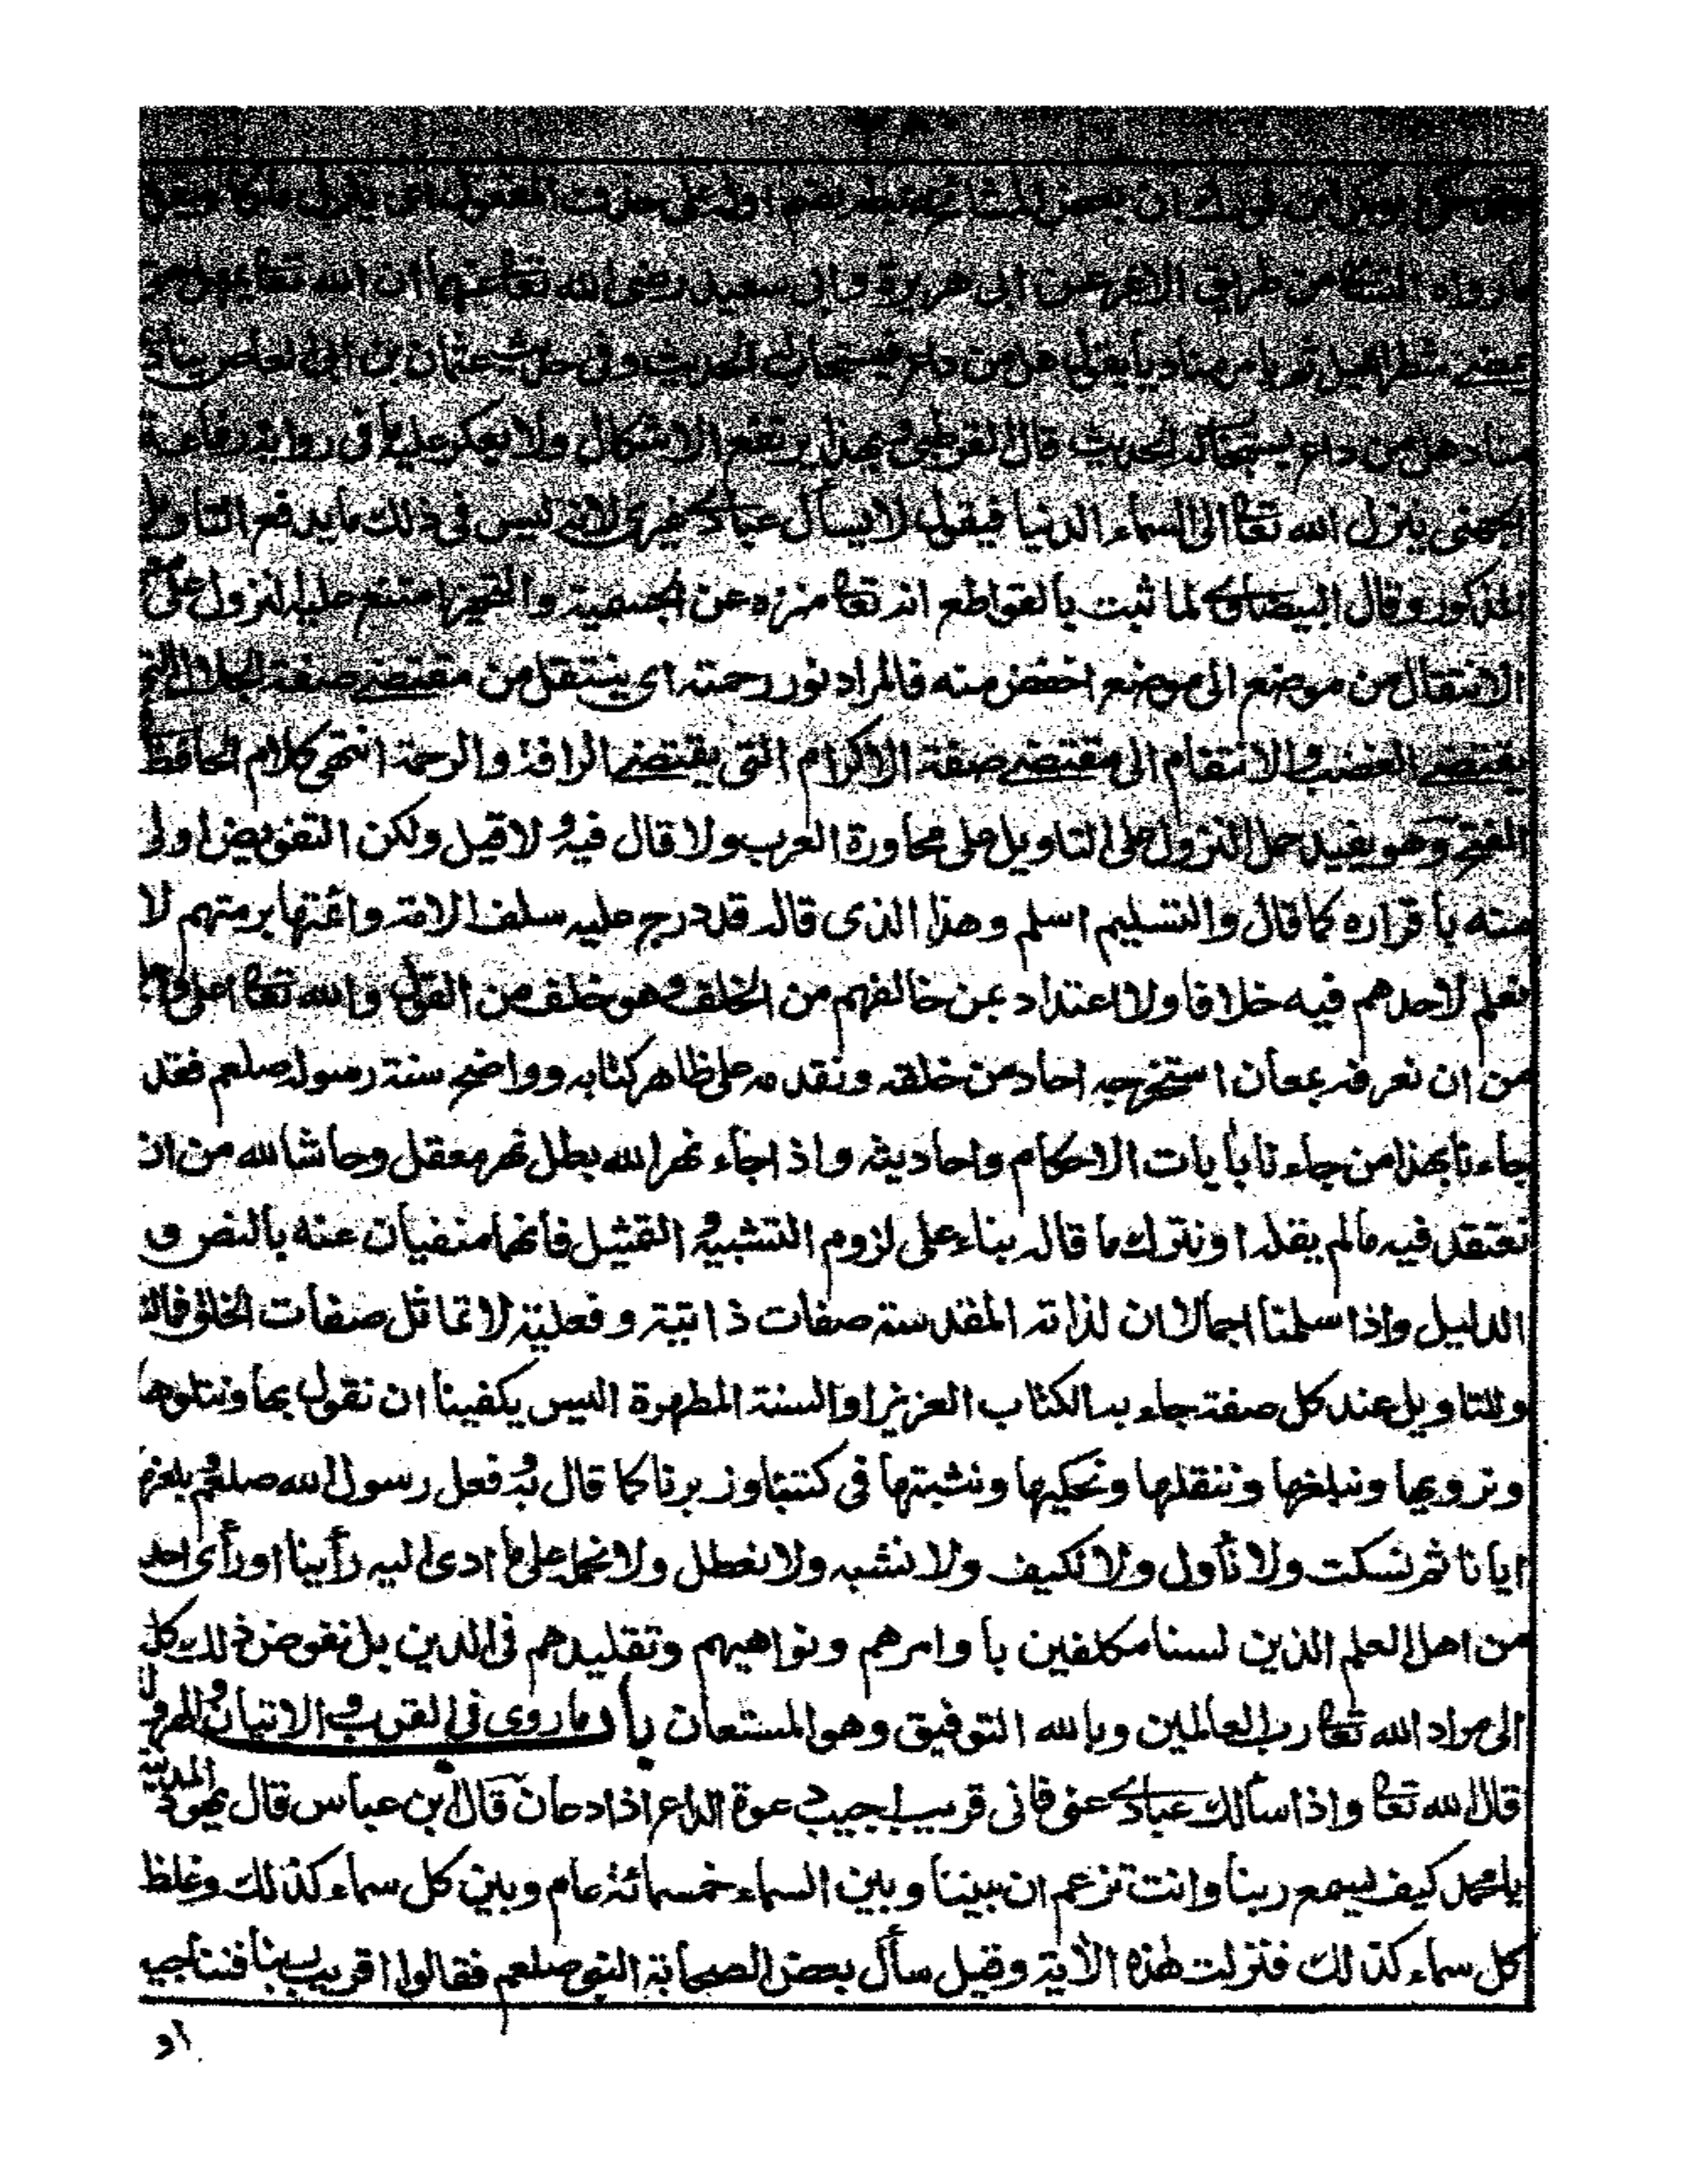 ان بعض المشائخ ضبطه بضم اوله على حذف المفعول اى ينزل ملكا
ما رواه النسائى من طريق الاغر عن ابى هريرة وابى سعيد رضى الله تعا عنهما ان الله تعا يمهل حتى
يمضے شطر الليل ثم يامر مناديا يقول هل من داع فيستجاب له الحديث وفى حديث عثمان بن ابى العاص يناد
مناد هل من داع يستجاب له الحديث قال القرطبى وبهذا يرتفع الاشكال ولا يعكر عليه ما فى رواية رفاعة
الجهنى ينزل الله تعا الى السماء الدنيا فيقول لا يسأل عبادے غيرى لانه ليس فى ذلك ما يدفع التاويل
المذكور وقال البيضاوے لما ثبت بالقواطع انه تعا منزه عن الجسمية والتحيز امتنع عليه النزول على معنى
الانتقال من موضع الى موضع اخفض منه فالمراد نور رحمته اى ينتقل من مقتضے صفة الجلال التى
يقتضے الغضب والانتقام الى مقتضے صفة الاكرام التى يقتضے الرافة والرحمة انتهى كلام الحافظ
الفتح وهو يفيد حمل النزول على التاويل على محاورة العرب ولا قال فيه ولا قيل ولكن التفويض اولى
منه باقراره كما قال والتسليم اسلم وهذا الذى قاله قد درج عليه سلف الامة وائمتها برمتهم لا
نعلم لاحدهم فيه خلافا ولا اعتداد بمن خالفهم من الخلف وهو خلف من القول والله تعا اعلى واجل
من ان نعرفه بمعان استخرجه احاد من خلقه ونقدمه على ظاهر كتابه وواضح سنة رسوله صلعم فقد
جاءنا بهذا من جاءنا بايات الاحكام واحاديثه واذا جاء نهر الله بطل نهر معقل وحاشا لله من ان
نعتقد فيه مالم يقله او نترك ما قاله بناء على لزوم التشبيه والتمثيل فانهما منفيان عنه بالنص و
الدليل واذا سلمنا اجمالا ان لذاته المقدسة صفات ذاتية وفعلية لا تماثل صفات الخلق فمالنا
وللتاويل عند كل صفة جاء به الكتاب العزيز او السنة المطهرة اليس يكفينا ان نقول بها ونتلوها
ونرويها ونبلغها وننقلها ونحكيها ونثبتها فى كتبنا وزبرنا كما قال به وفعل رسول الله صلعم وبلغه
ايانا ثم نسكت ولا نأول ولا نكيف ولا نشبه ولا نعطل ولا نحمل على ما ادى اليه رأينا او رأى احد
من اهل العلم الذين لسنا مكلفين باوامرهم ونواهيهم وتقليدهم فى الدين بل نفوض ذلك كل
الى مراد الله تعا رب العالمين وبالله التوفيق وهو المستعان باب ما روى فى القرب والاتيان والهرولة
قال الله تعا واذا سألك عبادے عنى فانى قريب اجيب دعوة الداع اذا دعان قال ابن عباس قال يهود المدينة
يا محمد كيف يسمع ربنا وانت تزعم ان بيننا وبين السماء خمسمائة عام وبين كل سماء كذلك وغلظ
كل سماء كذلك فنزلت هذه الآية وقيل سأل بعض الصحابة النبى صلعم فقالوا اقريب ربنا فنناجيه
او